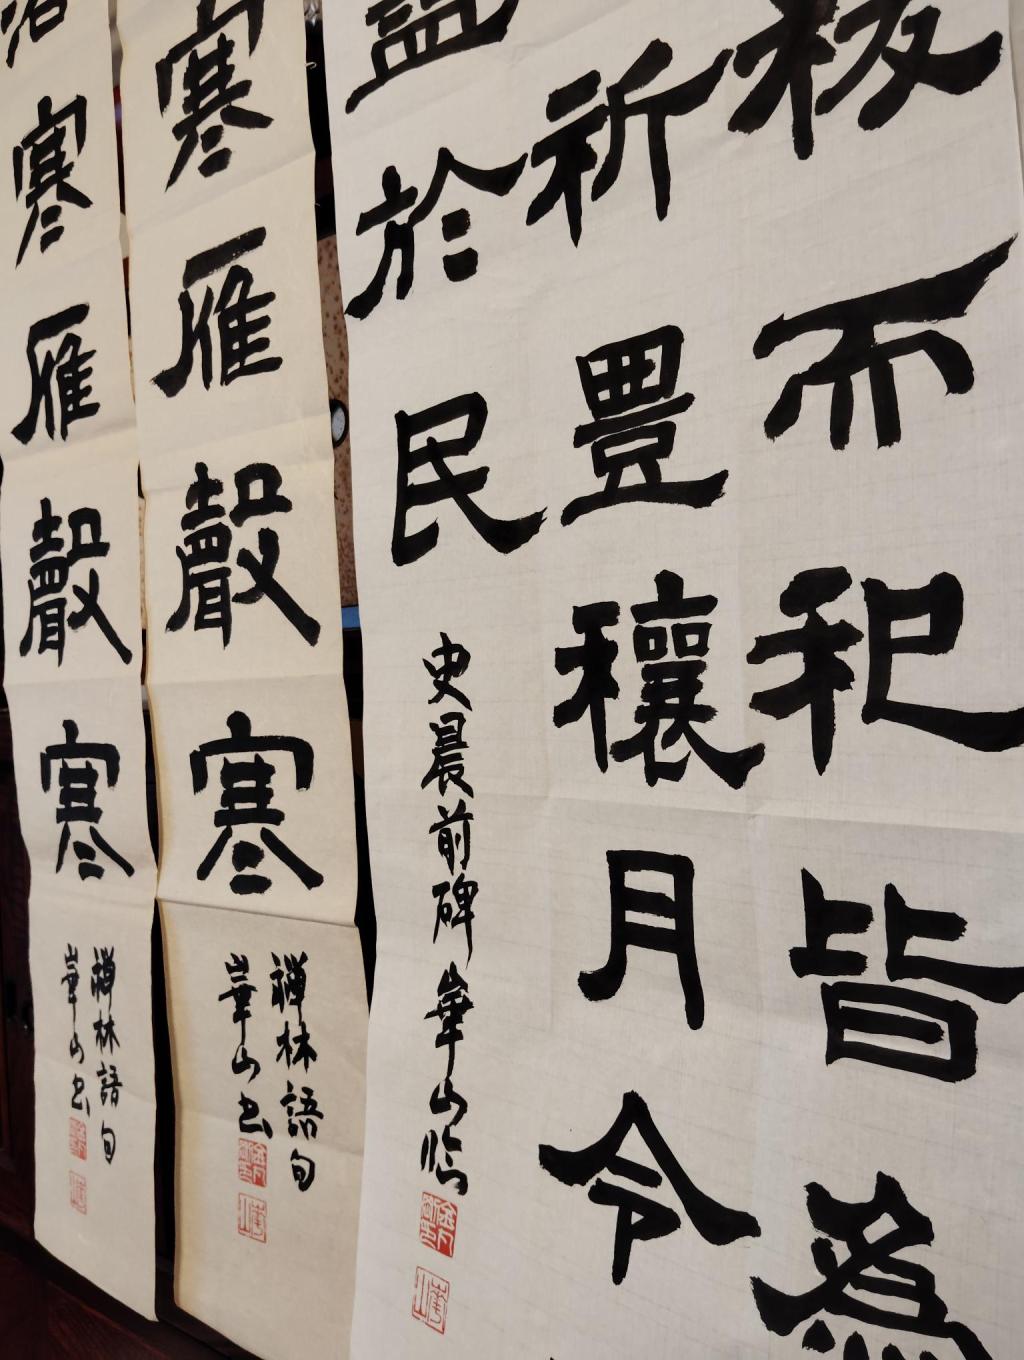 而祀皆為
祈豊穰月令
益於民
史晨前碑 華山臨
寒雁聲寒
禪林語句
華山書
寒雁聲寒
禪林語句
華山書